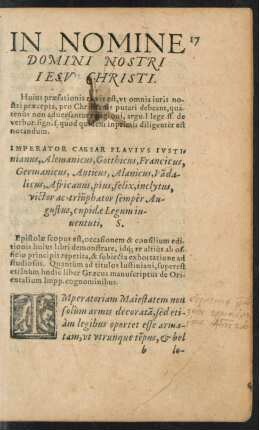 17
IN NOMINE
DOMINI NOSTRI
IESV CHRISTI.
Huius præfationis est, vt omnia iuris no-
stri præcepta, pro Christianis putari debeant, qua-
tenus non aduersantur argu. l lege ff. de
verbor. sign. quod inprimis diligenter est
notandum.
IMPERATOR CAESAR FLAVIVS IVSTI-
nianus, Alemanicus, Gotthicus, Francicus,
Germanicus, Anticus, Alanicus, Vãda-
licus, Africanus, pius, felix, inclytus,
victor ac triũphator semper Au-
gustus, cupidæ Legum iu-
uentuti, S.
Epistolæ scopus est, occasionem & consilium edi-
tionis huius libri demonstrare, idq; re altius ab of-
ficio principis repetita, & subiecta exhortatione ad
studiosos. Quantum ad titulos Iustiniani, superest
etiãnum hodie liber Græcus manuscriptus de Ori-
entalium Impp. cognominibus.
IMperatoriam Maiestatem non
solum armis decoratã, sed eti-
ãm legibus oportet esse arma-
tam, vt vtrunque tẽpus, & bel
b lo-